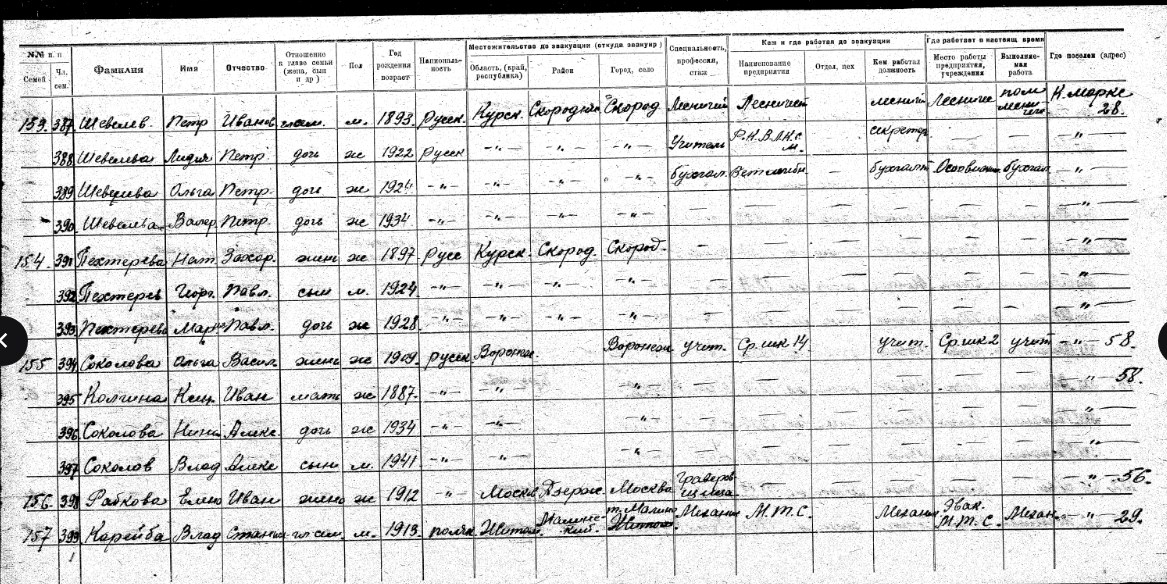 №№ п. п. Семей Чл. сем. Фамилия Имя Отчество Отношение к главе семьи (жена, сын и др) Пол Год рождения возраст Национальность Местожительство до эвакуации (откуда эвакуир) Область, (край, республика) Район Город, село Специальность, профессия, стаж Кем и где работал до эвакуации Наименование предприятия Отдел, цех Кем работал должность Где работает в настоящ. время Место работы предприятия, учреждения Выполняемая работа Где поселен (адрес)
153. 387 Шевелев. Петр Иванов глав. м. 1893 Русск. Курск. Скороднян Скород Лесничий Лесничест леснич Леснич пом лесничего К. Маркс 28.
388 Шевелева Лидия Петр. дочь ж 1922 Русск -"- -"- -"- Учитель Р.К.В.Л.К.С.М. — секретар — — -"-
389 Шевелева Ольга Петр. дочь ж 1924 -"- -"- -"- -"- бухгал. — бухгалт бухгал -"-
390 Шевелева Валер. Петр. дочь ж 1934 -"- -"- -"- -"- — — — — — — -"-
154. 391 Пехтерева Нат. Захар. жена ж 1897 Русс Курск. Скород. Скород. — — — — — — -"-
392 Пехтерев Георг. Павл. сын м. 1924 -"- -"- -"- -"- — — — — — — -"-
393 Пехтерева Мария Павл. дочь ж 1928 -"- -"- -"- -"- — — — — — — -"-
155 394 Соколова Ольга Васил. жена ж 1909 русск Воронеж. Воронеж учит. Ср. шк 14 учит. Ср. шк 2 учит -"- 58.
395 Иван мать ж 1887 -"- -"- -"- — — — — — — -"- 58.
396 Соколова Нина Алекс. дочь ж 1934 -"- -"- -"- — — — — — — -"-
397 Соколов Влад Алекс сын м. 1941 -"- -"- -"- — — — — — — -"-
156. 398 Рабкова Елен Иван жена ж 1912 -"- Москв Дзерж. Москва — — — — — -"- 56.
157 399 Карейба Влад Стани гл. сем. м. 1913 поляк Житом. Механик М.Т.С. Механи Эвак. М.Т.С. Механ. -"- 29.